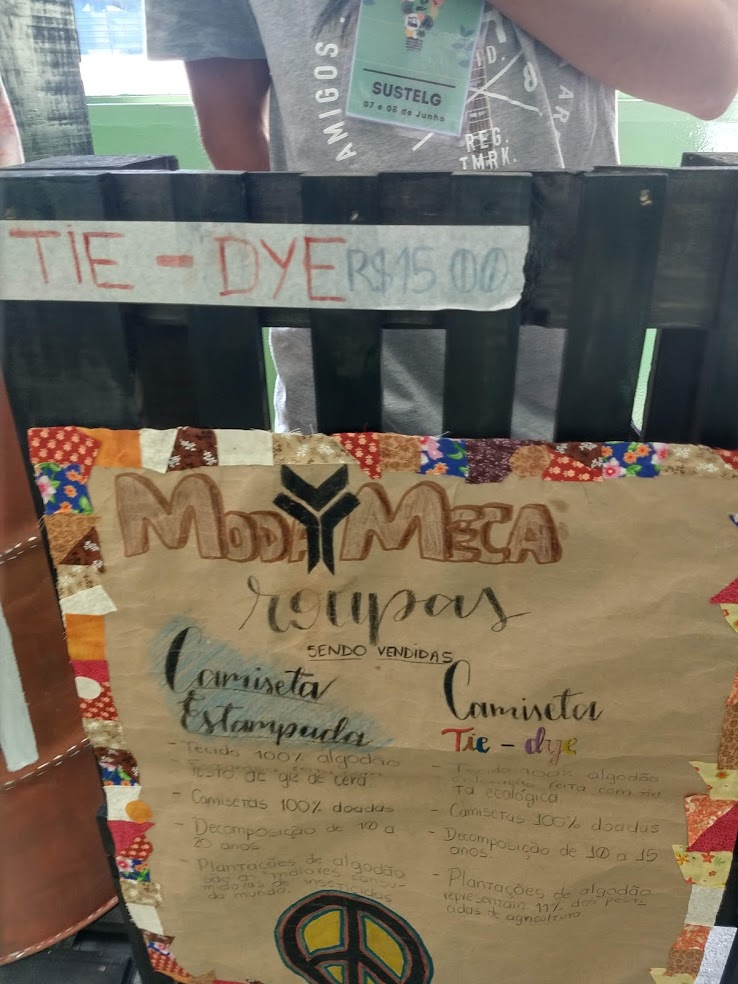 AMIGOS
AR
SUSTELG
07 e 08 de Junho
REG.
TMRK.
TiE - DYE R$15.00
MODA MECA
roupas
SENDO VENDIDAS
Camiseta
Estampada
- Tecido 100% algodão
resto de giz de cera
- Camisetas 100% doadas
- Decomposição de 10 a
20 anos.
- Plantações de algodão
são as maiores consu-
midoras de inseticidas
do mundo.
Camiseta
Tie - dye
- Tecido 100% algodão
feita com tin
ta ecológica
- Camisetas 100% doadas
- Decomposição de 10 a 15
anos.
- Plantações de algodão
representam 11% dos pesti
cidas de agricultura